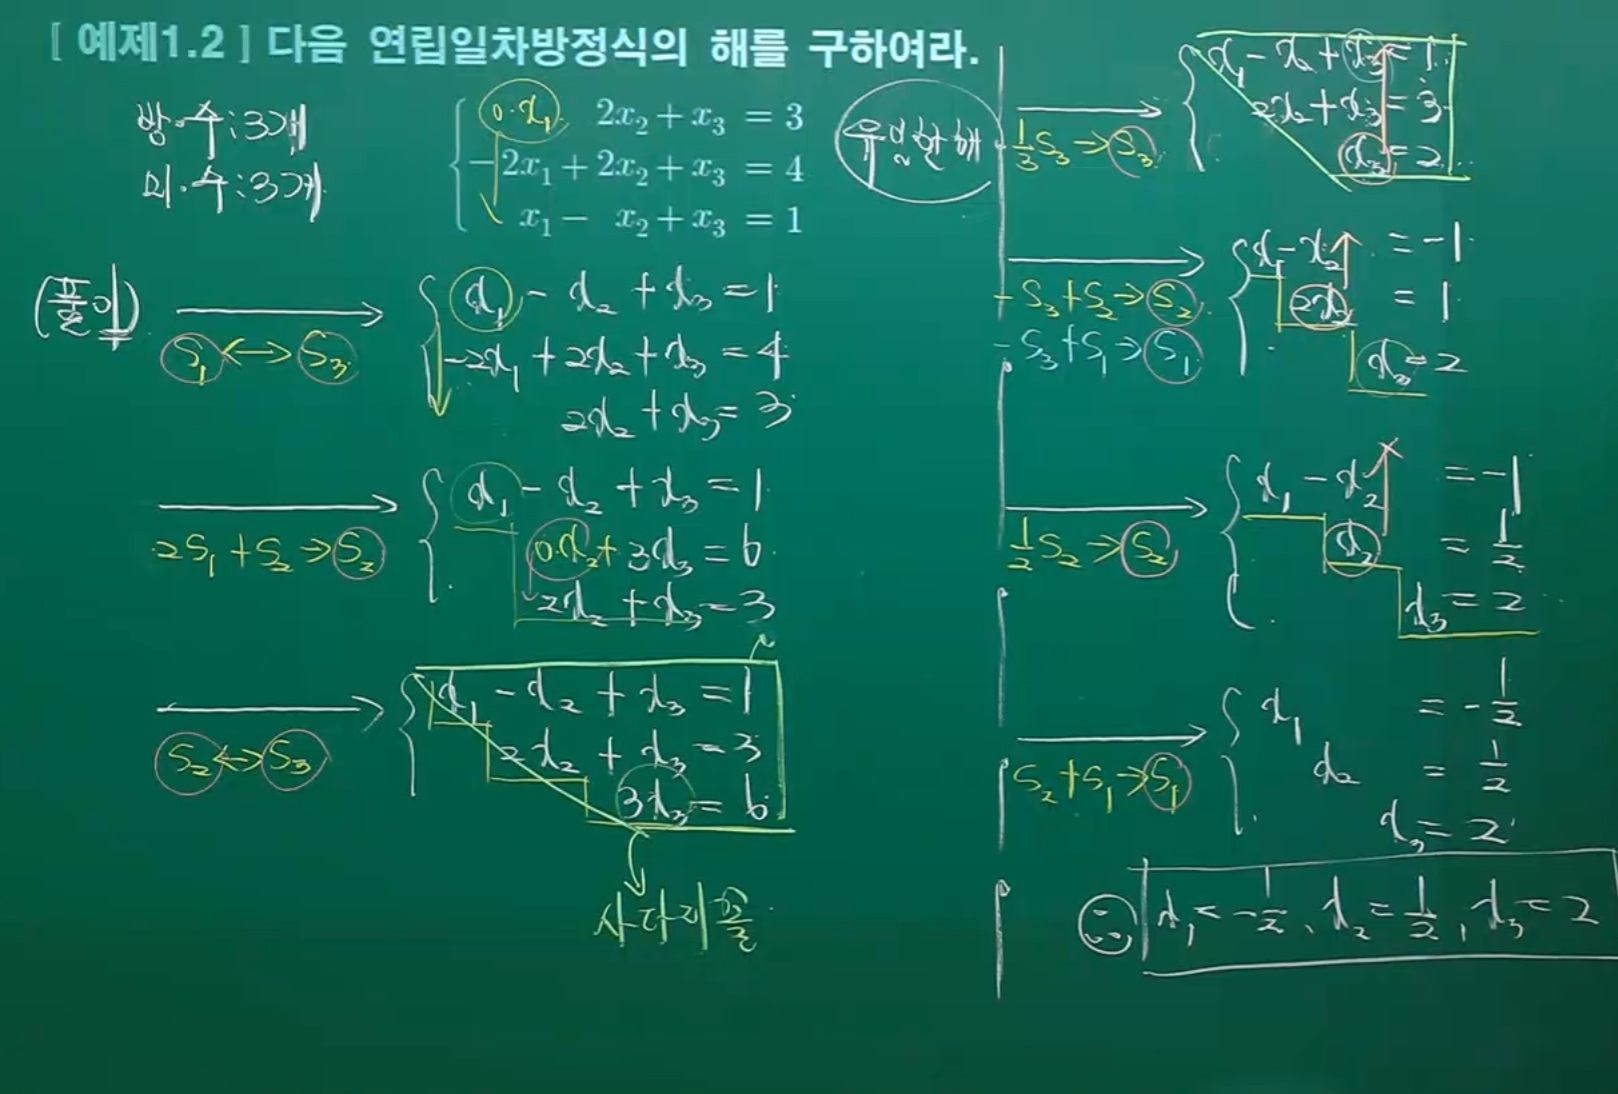 [ 예제1.2 ] 다음 연립일차방정식의 해를 구하여라.
방.수:3개
미.수:3개
0·x₁ 2x₂ + x₃ = 3
-2x₁ + 2x₂ + x₃ = 4
x₁ - x₂ + x₃ = 1
유일한 해
(풀이)
S₁ ↔ S₃
x₁ - x₂ + x₃ = 1
-2x₁ + 2x₂ + x₃ = 4
2x₂ + x₃ = 3
2S₁ + S₂ → S₂
x₁ - x₂ + x₃ = 1
0·x₂ + 3x₃ = 6
2x₂ + x₃ = 3
S₂ ↔ S₃
x₁ - x₂ + x₃ = 1
2x₂ + x₃ = 3
3x₃ = 6
사다리꼴
1/3 S₃ → S₃
x₁ - x₂ + x₃ = 1
2x₂ + x₃ = 3
x₃ = 2
-S₃ + S₂ → S₂
-S₃ + S₁ → S₁
x₁ - x₂ = -1
2x₂ = 1
x₃ = 2
1/2 S₂ → S₂
x₁ - x₂ = -1
x₂ = 1/2
x₃ = 2
S₂ + S₁ → S₁
x₁ = -1/2
x₂ = 1/2
x₃ = 2
∴ x₁ = -1/2, x₂ = 1/2, x₃ = 2